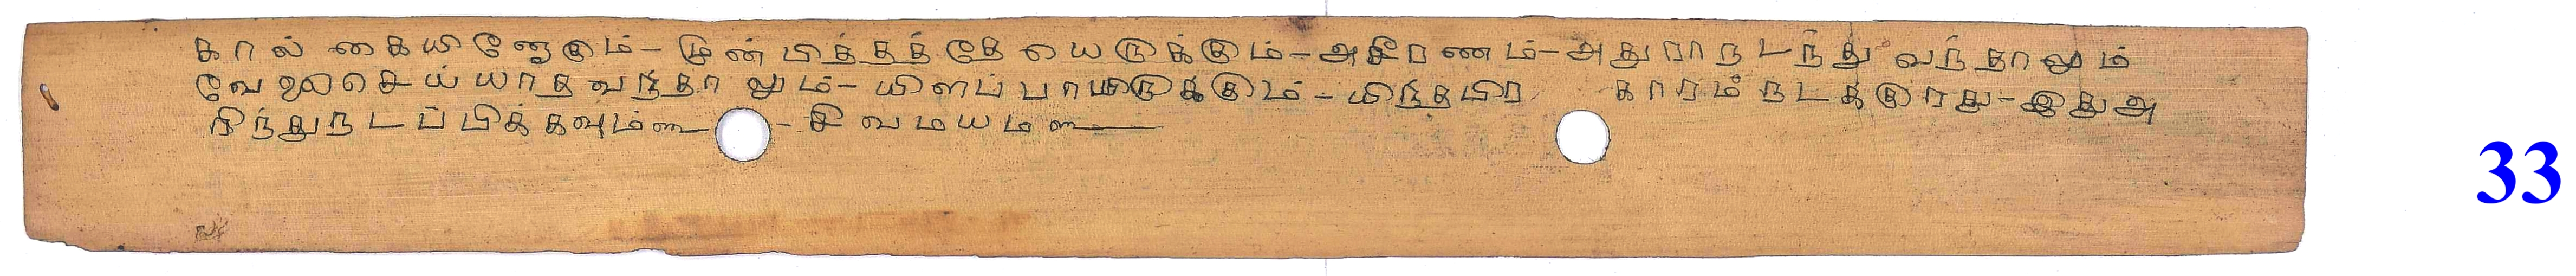 கால் கையினோகும் - முன் பித்தத்தே யெருக்கும் - அசீரணம் - அதுரா நடந்து வந்தாலும்
வேலை செய்யாத வந்தாலும் - யிளப்பாயிருக்கும் - யிந்தபிர காரம் நடக்குரது - இது அ
றிந்து நடப்பிக்கவும் - சிவமயம்
33